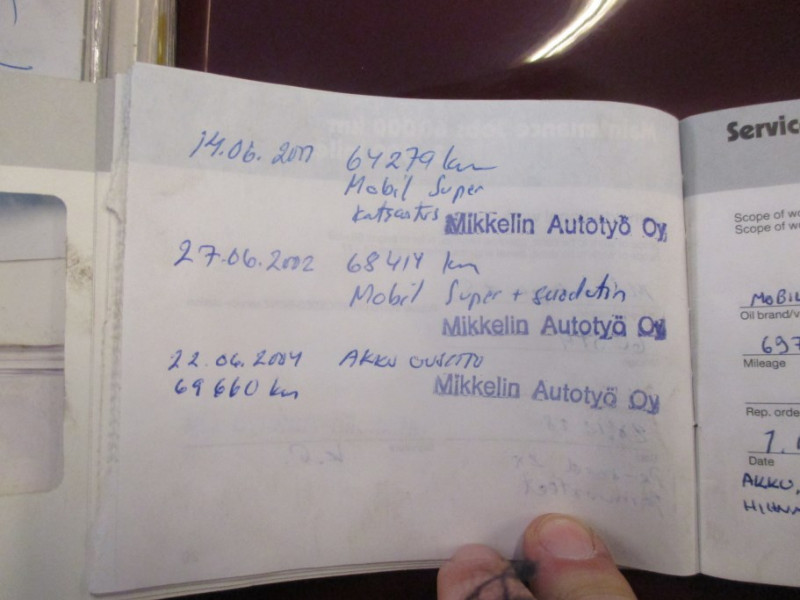 14.06.2001 64279 km
Mobil Super
katsastus Mikkelin Autotyö Oy
27.06.2002 68414 km
Mobil Super + suodatin
Mikkelin Autotyö Oy
22.06.2004 AKKU UUSITTU
69660 km Mikkelin Autotyö Oy
Servic
Scope of wo
Scope of wo
MOBIL
Oil brand/v
697
Mileage
Rep. orde
1.
Date
AKKU,